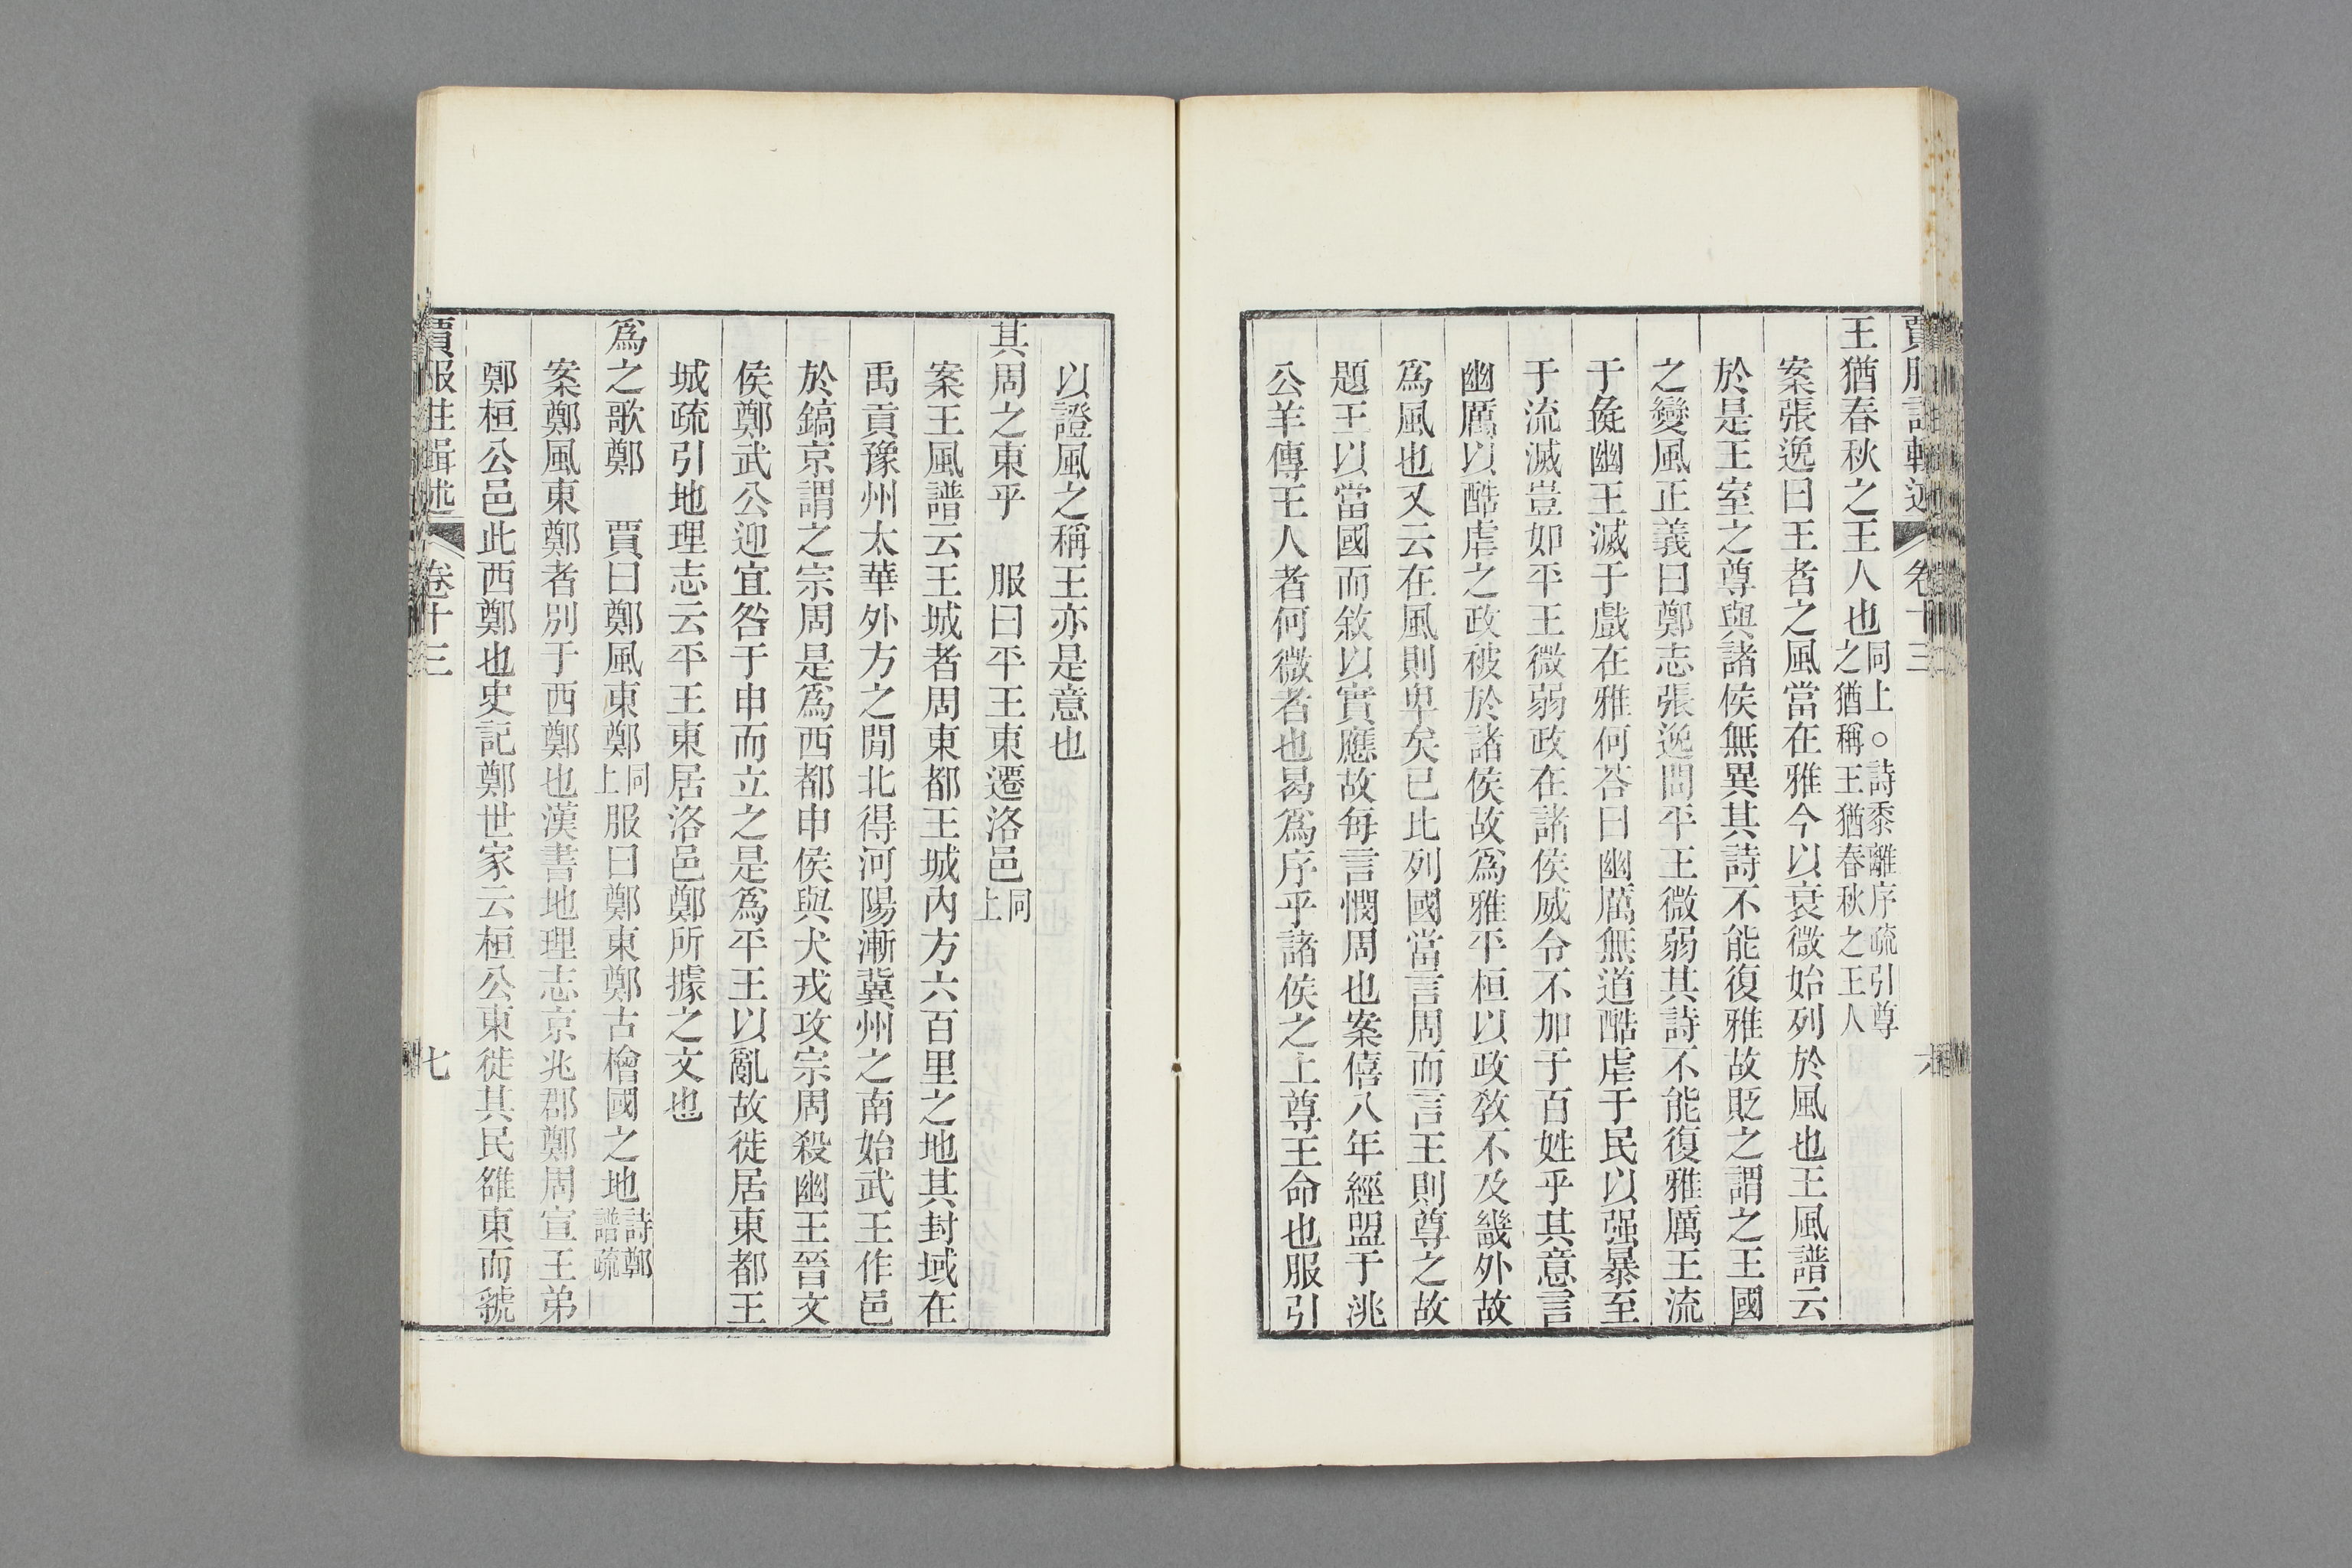 王猶春秋之王人也同上○詩黍離序疏引尊之猶稱王猶春秋之王人
案張逸曰王者之風當在雅今以衰微始列於風也王風譜云
於是王室之尊與諸侯無異其詩不能復雅故貶之謂之王國
之變風正義曰鄭志張逸問平王微弱其詩不能復雅厲王流
于彘幽王滅于戲在雅何荅曰幽厲無道酷虐于民以强暴至
于流滅豈如平王微弱政在諸侯威令不加于百姓乎其意言
幽厲以酷虐之政被於諸侯故爲雅平桓以政敎不及畿外故
爲風也又云在風則卑矣已比列國當言周而言王則尊之故
題王以當國而敘以實應故每言憫周也案僖八年經盟于洮
公羊傳王人者何微者也曷爲序乎諸侯之上尊王命也服引
以證風之稱王亦是意也
其周之東乎　服曰平王東遷洛邑同上
案王風譜云王城者周東都王城內方六百里之地其封域在
禹貢豫州太華外方之閒北得河陽漸冀州之南始武王作邑
於鎬京謂之宗周是爲西都申侯與犬戎攻宗周殺幽王晉文
侯鄭武公迎宜咎于申而立之是爲平王以亂故徙居東都王
城疏引地理志云平王東居洛邑鄭所據之文也
爲之歌鄭　賈曰鄭風東鄭同上服曰鄭東鄭古檜國之地詩鄭譜疏
案鄭風東鄭者別于西鄭也漢書地理志京兆郡鄭周宣王弟
鄭桓公邑此西鄭也史記鄭世家云桓公東徙其民雒東而虢
賈服註輯述　卷十三　七